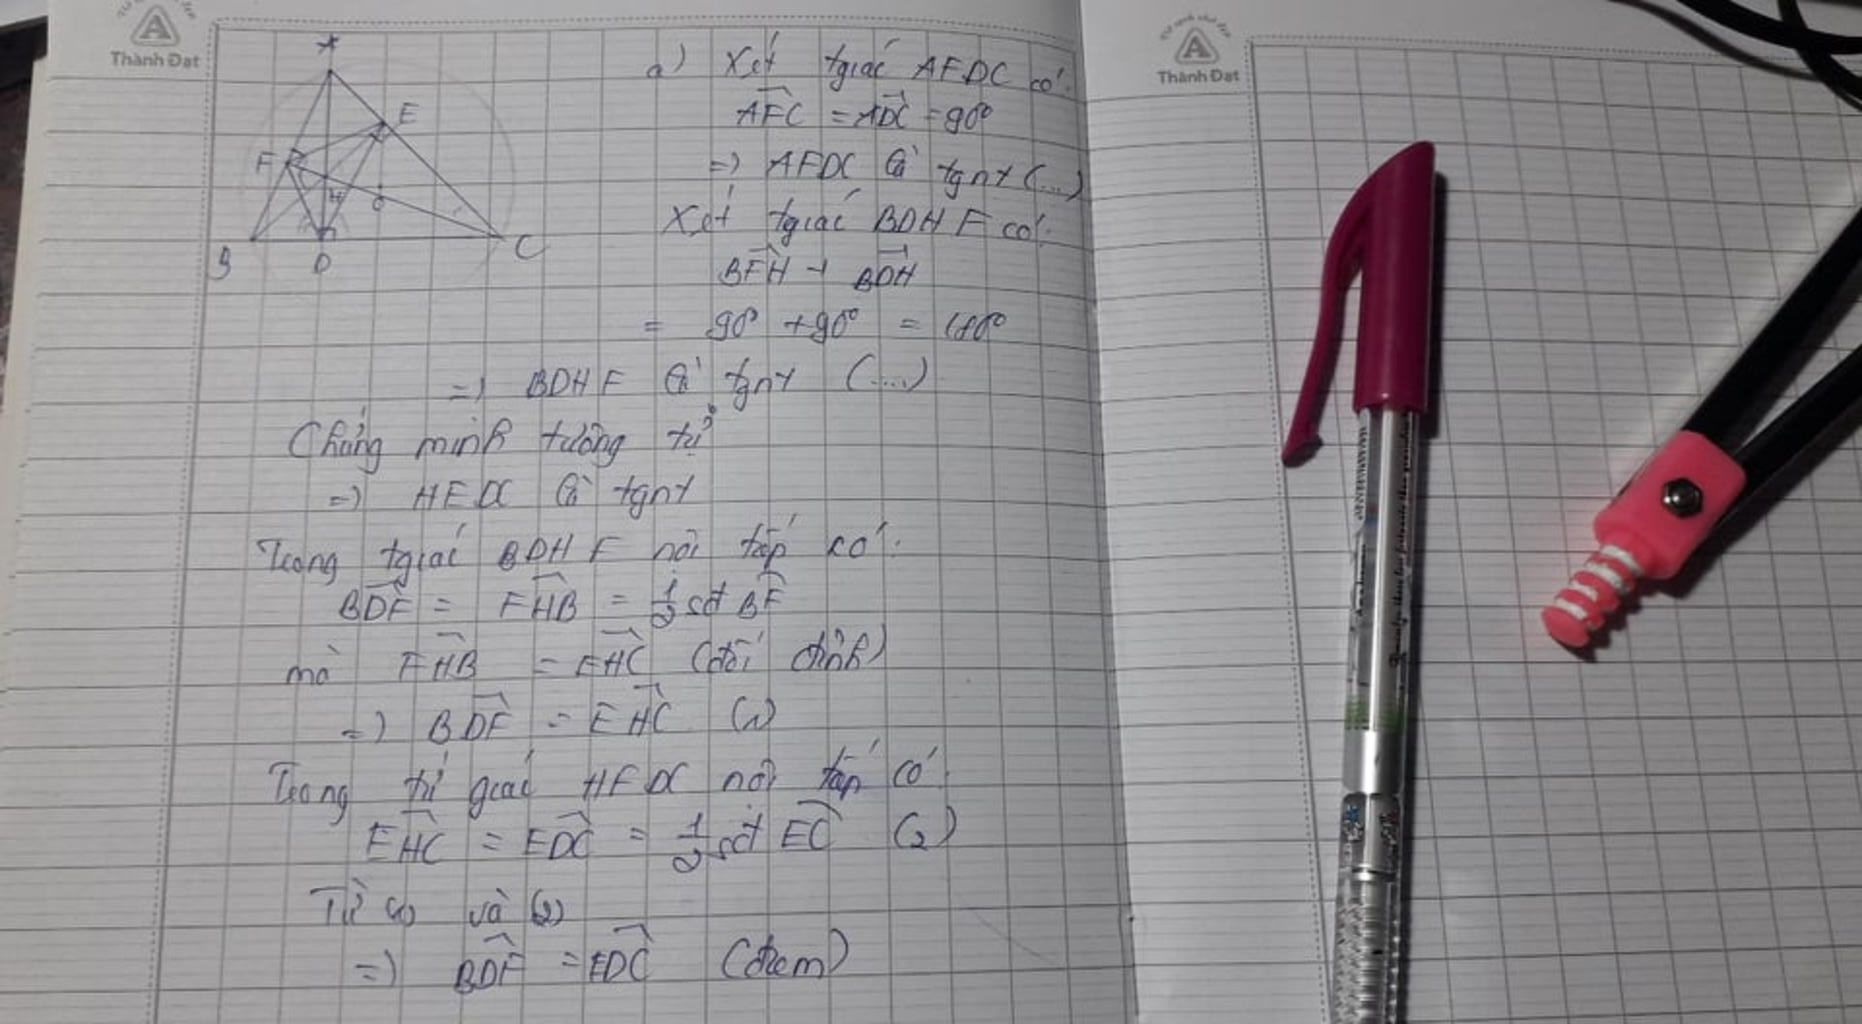 Thành Đạt
Thành Đạt
A
E
F
H
O
B
D
C
a) Xét tgiác AFDC có:
AFC = ADC = 90°
=> AFDC là tgnt (...)
Xét tgiác BDHF có:
BFH + BDH
= 90° + 90° = 180°
=> BDHF là tgnt (....)
Chứng minh tương tự
=> HEDC là tgnt
Trong tgiác BDHF nội tiếp có:
BDF = FHB = 1/2 sđ BF
mà FHB = EHC (đối đỉnh)
=> BDF = EHC (1)
Trong tứ giác HEDC nội tiếp có:
EHC = EDC = 1/2 sđ EC (2)
Từ (1) và (2)
=> BDF = EDC (đpcm)